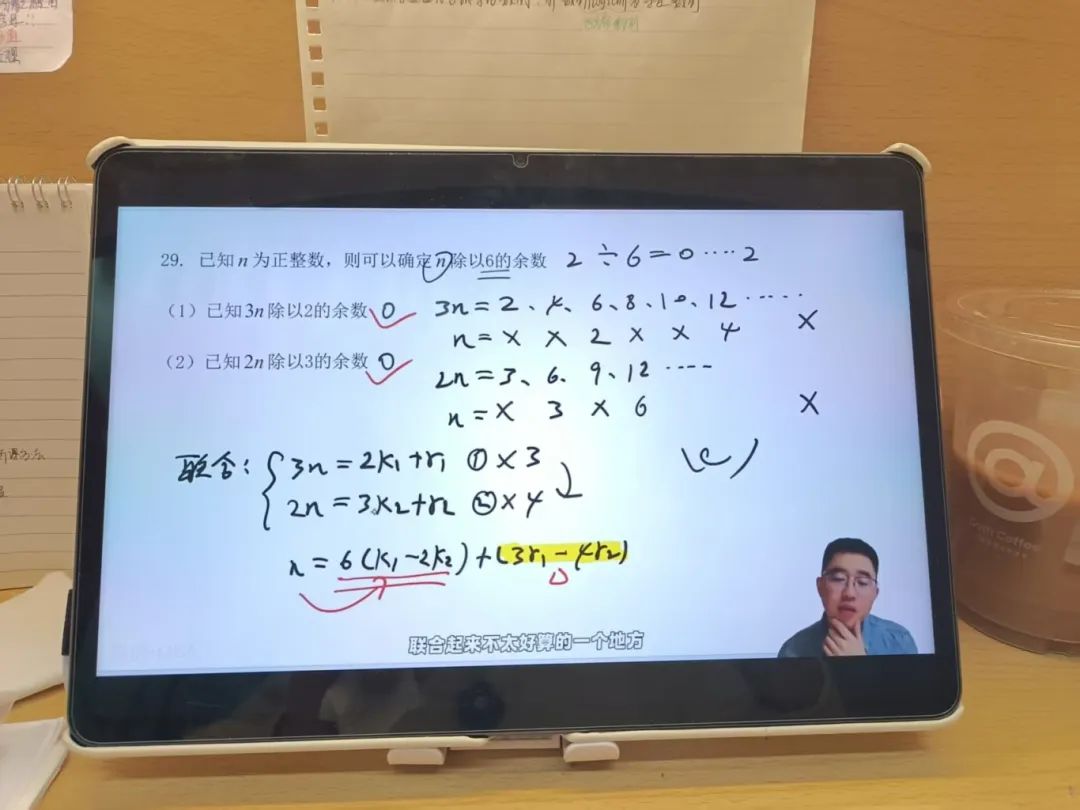 29. 已知n为正整数，则可以确定n除以6的余数 2÷6=0····2
（1）已知3n除以2的余数 0 3n=2、4、6、8、10、12·····
n=× × 2 × × 4 ×
（2）已知2n除以3的余数 0 2n=3、6、9、12····
n=× 3 × 6 ×
联合：{3n=2k₁+r₁ ①×3 (C)
2n=3k₂+r₂ ②×4
n=6(k₁-2k₂)+(3r₁-4r₂)
联合起来不太好算的一个地方